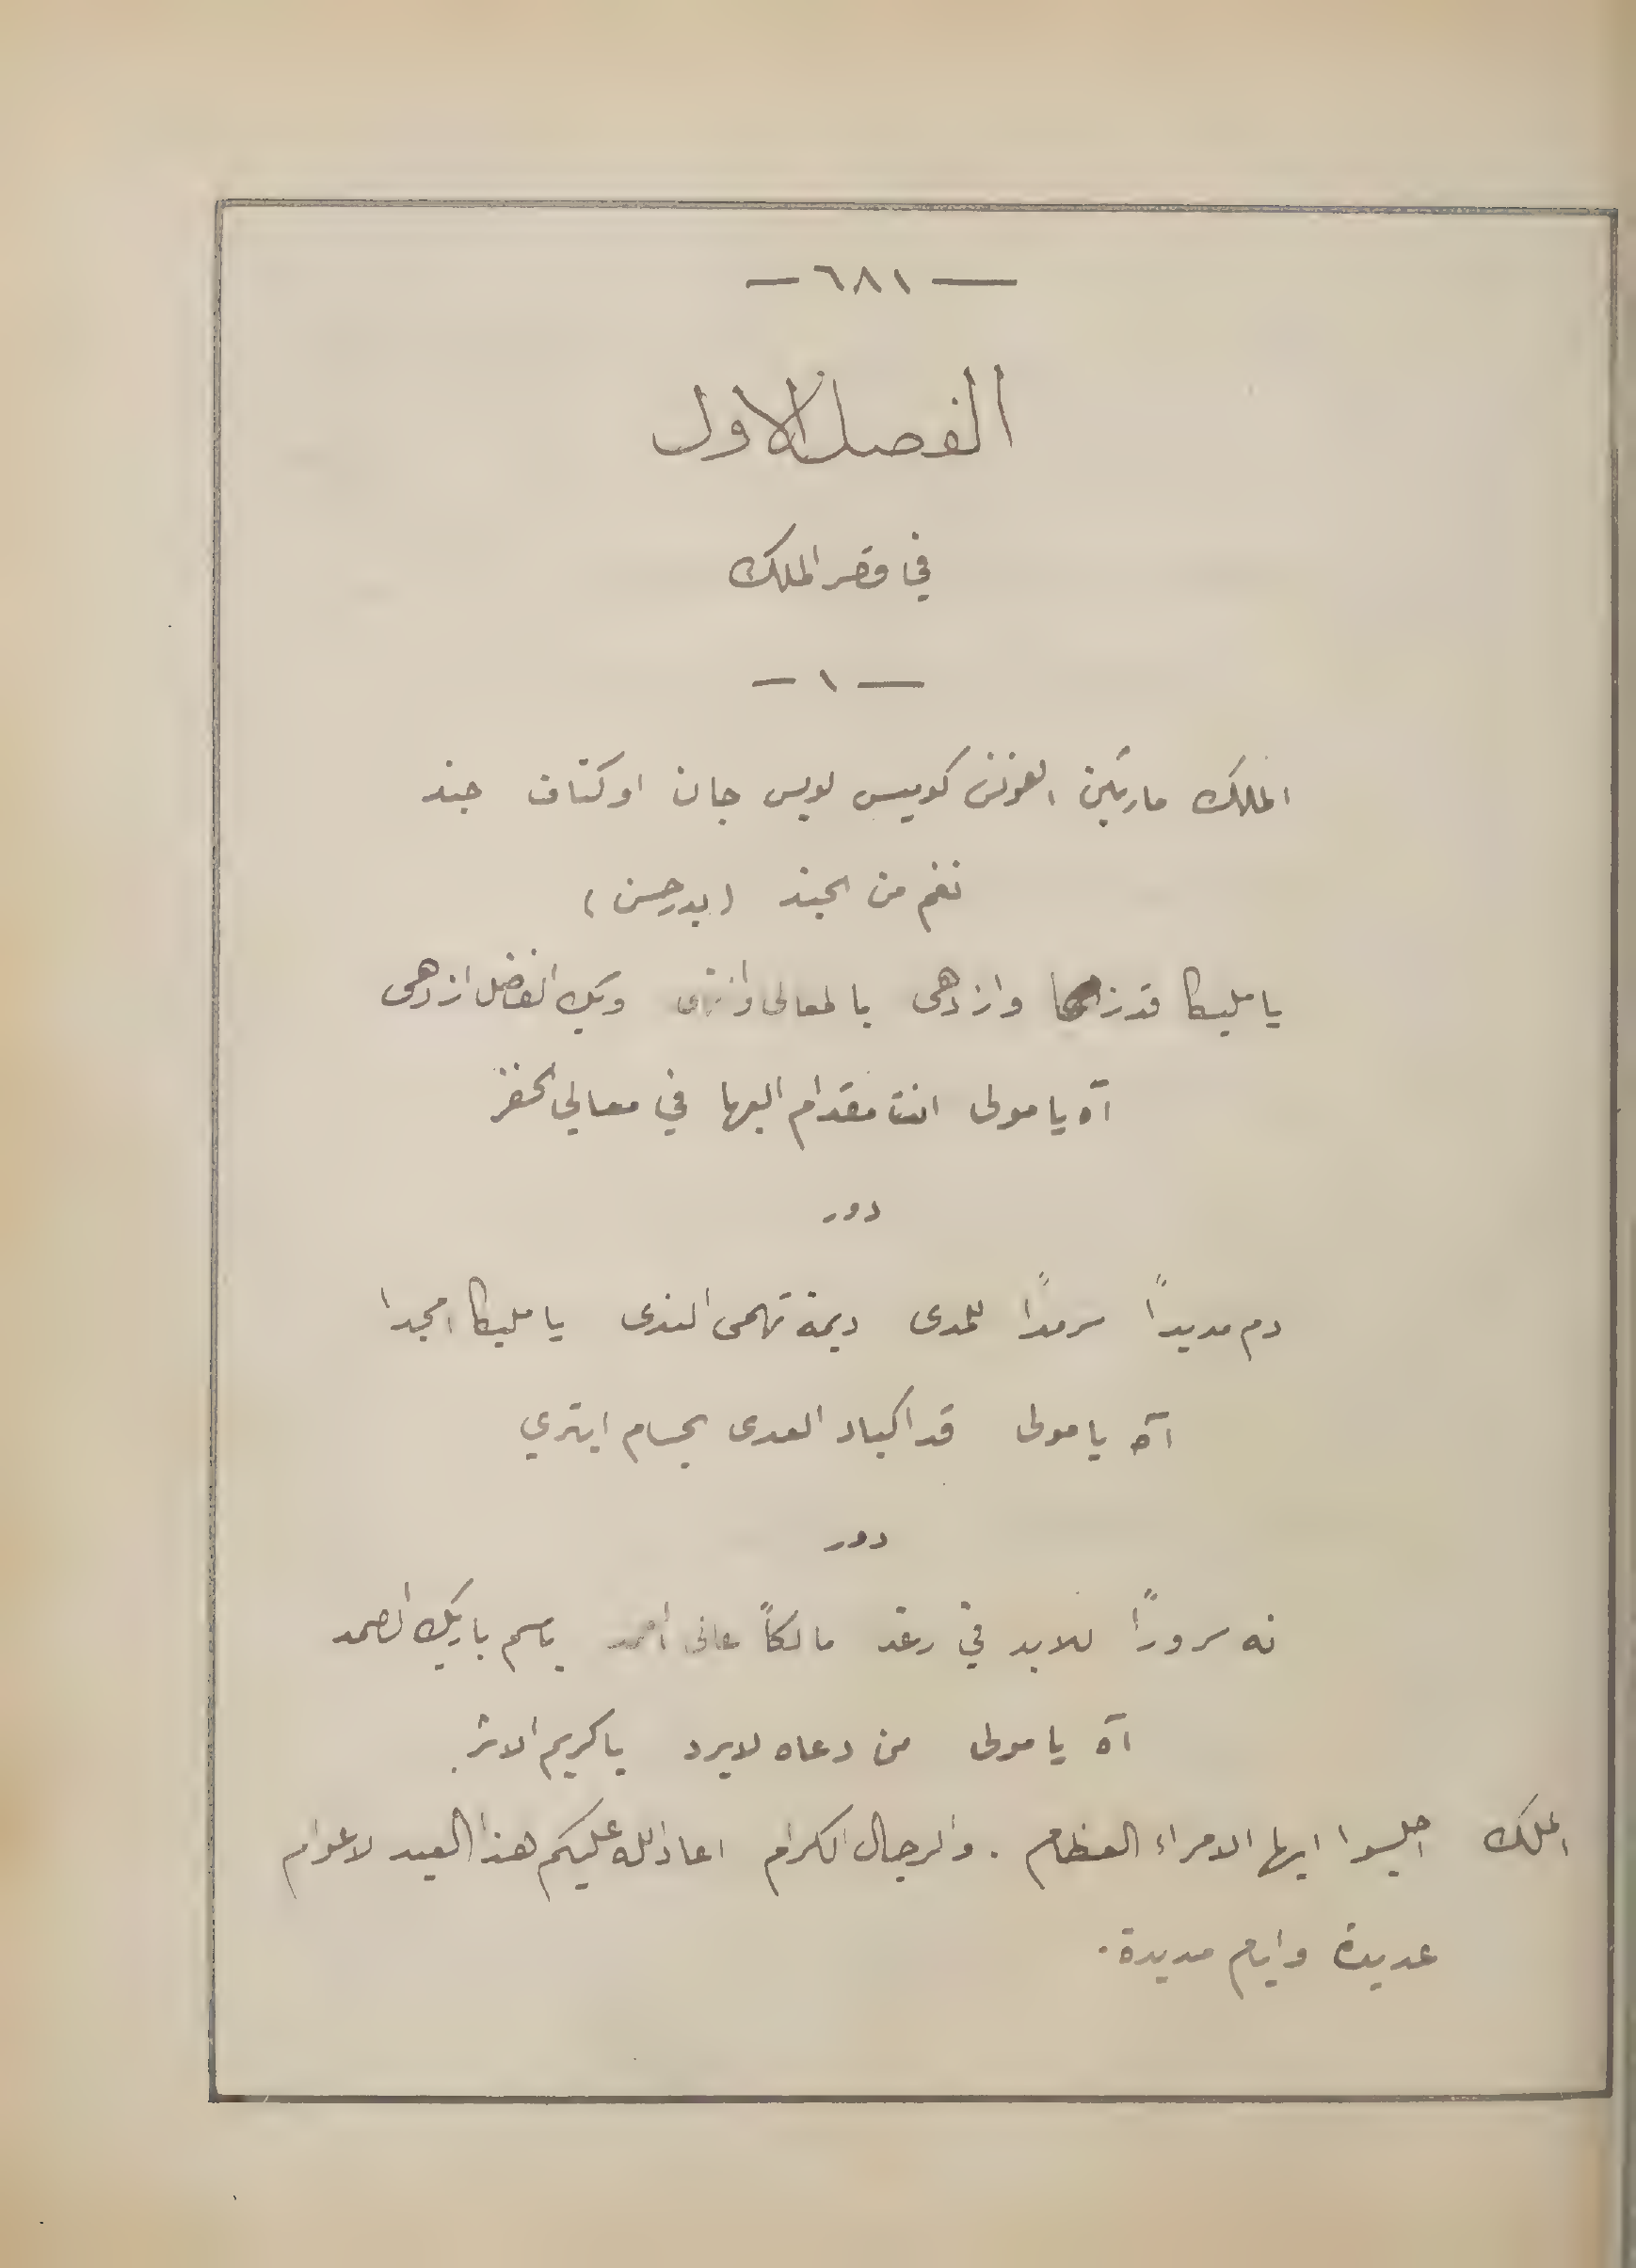 — ٦٨١ —
الفصل الاول
في قصر الملك
— ١ —
الملك مارتين الفونز كوميس لويس جان اوكتاف جند
نغم من الجند (بدر حسن)
يا مليكا قد زها وازدهى بالمعالي وانتهى وبك الفضل ازدهى
آه يا مولى انت مقدام البها في معالي
دور
دم مديداً سرمداً للمدى ديمة تهمى الندى يا مليكا امجدا
آه يا مولى قد اكباد العدى بحسام ابتري
دور
ته سروراً للابد في رغد مالكاً باسم باريك الصمد
آه يا مولى من دعاه لا يرد يا كريم الاثر
الملك اجلسوا ايها الامراء العظام . والرجال الكرام اعاد الله عليكم هذا العيد لاعوام
عديدة وايام مديدة .